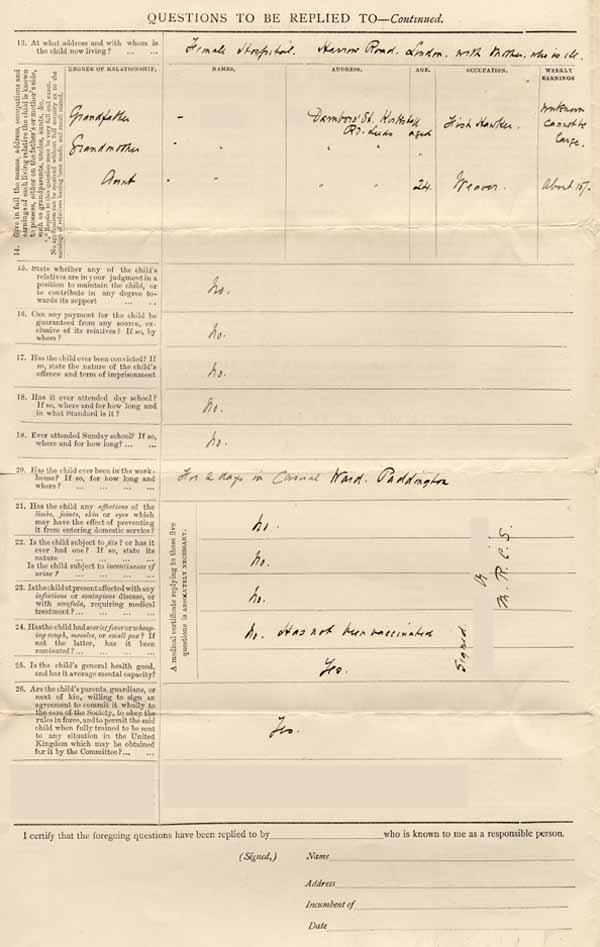 QUESTIONS TO BE REPLIED TO—Continued.
13. At what address and with whom is
the child now living? ... ...
Female Hospital. Harrow Road. London. with Mother, who is ill.
14. Give in full the names, address, occupations and
earnings of each living relative the child is known
to possess, either on the father's or mother's side,
such as grandparents, uncles, aunts, &c.
DEGREE OF RELATIONSHIP.
NAMES.
ADDRESS.
AGE.
OCCUPATION.
WEEKLY
EARNINGS
Grandfather
-
St. Kirkstall
Rd. Leeds
aged
Fish Hawker.
Unknown
cannot be
large.
Grandmother
" " " " "
Aunt
" " " "
24.
Weaver.
About 15/-
15. State whether any of the child's
relatives are in your judgment in a
position to maintain the child, or
to contribute in any degree to-
wards its support ... ...
No.
16. Can any payment for the child be
guaranteed from any source, ex-
clusive of its relatives? If so, by
whom?
No.
17. Has the child ever been convicted? If
so, state the nature of the child's
offence and term of imprisonment
No.
18. Has it ever attended day school?
If so, where and for how long and
in what Standard is it?
No.
19. Ever attended Sunday school? If so,
where and for how long? ... ...
No.
20. Has the child ever been in the work-
house? If so, for how long and
where? ... ... ... ...
For 2 days in Casual Ward. Paddington
A medical certificate replying to these five
questions is ABSOLUTELY NECESSARY:
21. Has the child any affections of the
limbs, joints, skin or eyes which
may have the effect of preventing
it from entering domestic service?
No.
22. Is the child subject to fits? or has it
ever had one? If so, state its
nature ... ... ... ...
Is the child subject to incontinence of
urine? ... ... ... ...
No.
23. Is the child at present affected with any
infectious or contagious disease, or
with scrofula, requiring medical
treatment? ... ... ... ...
No.
24. Has the child had scarlet fever or whoop-
ing cough, measles, or small pox? If
not the latter, has it been
vaccinated? ... ... ... ...
No. Has not been vaccinated
25. Is the child's general health good,
and has it average mental capacity?
Yes.
Signed
M.R.C.S.
26. Are the child's parents, guardians, or
next of kin, willing to sign an
agreement to commit it wholly to
the care of the Society, to obey the
rules in force, and to permit the said
child when fully trained to be sent
to any situation in the United
Kingdom which may be obtained
for it by the Committee? ... ...
Yes.
I certify that the foregoing questions have been replied to by who is known to me as a responsible person.
(Signed,) Name
Address
Incumbent of
Date